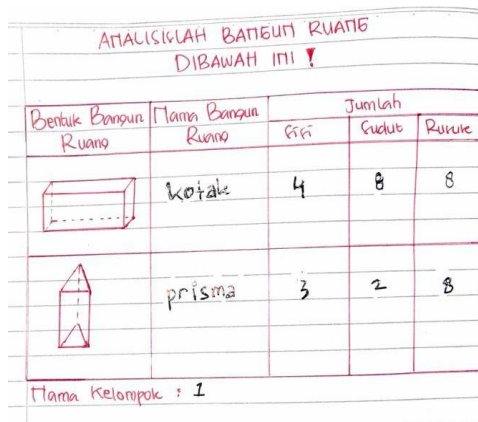 ANALISISLAH BANGUN RUANG
DIBAWAH INI !
Bentuk Bangun Ruang Nama Bangun Ruang Jumlah
Sisi Sudut Rusuk
kotak 4 8 8
prisma 3 2 8
Nama Kelompok : 1